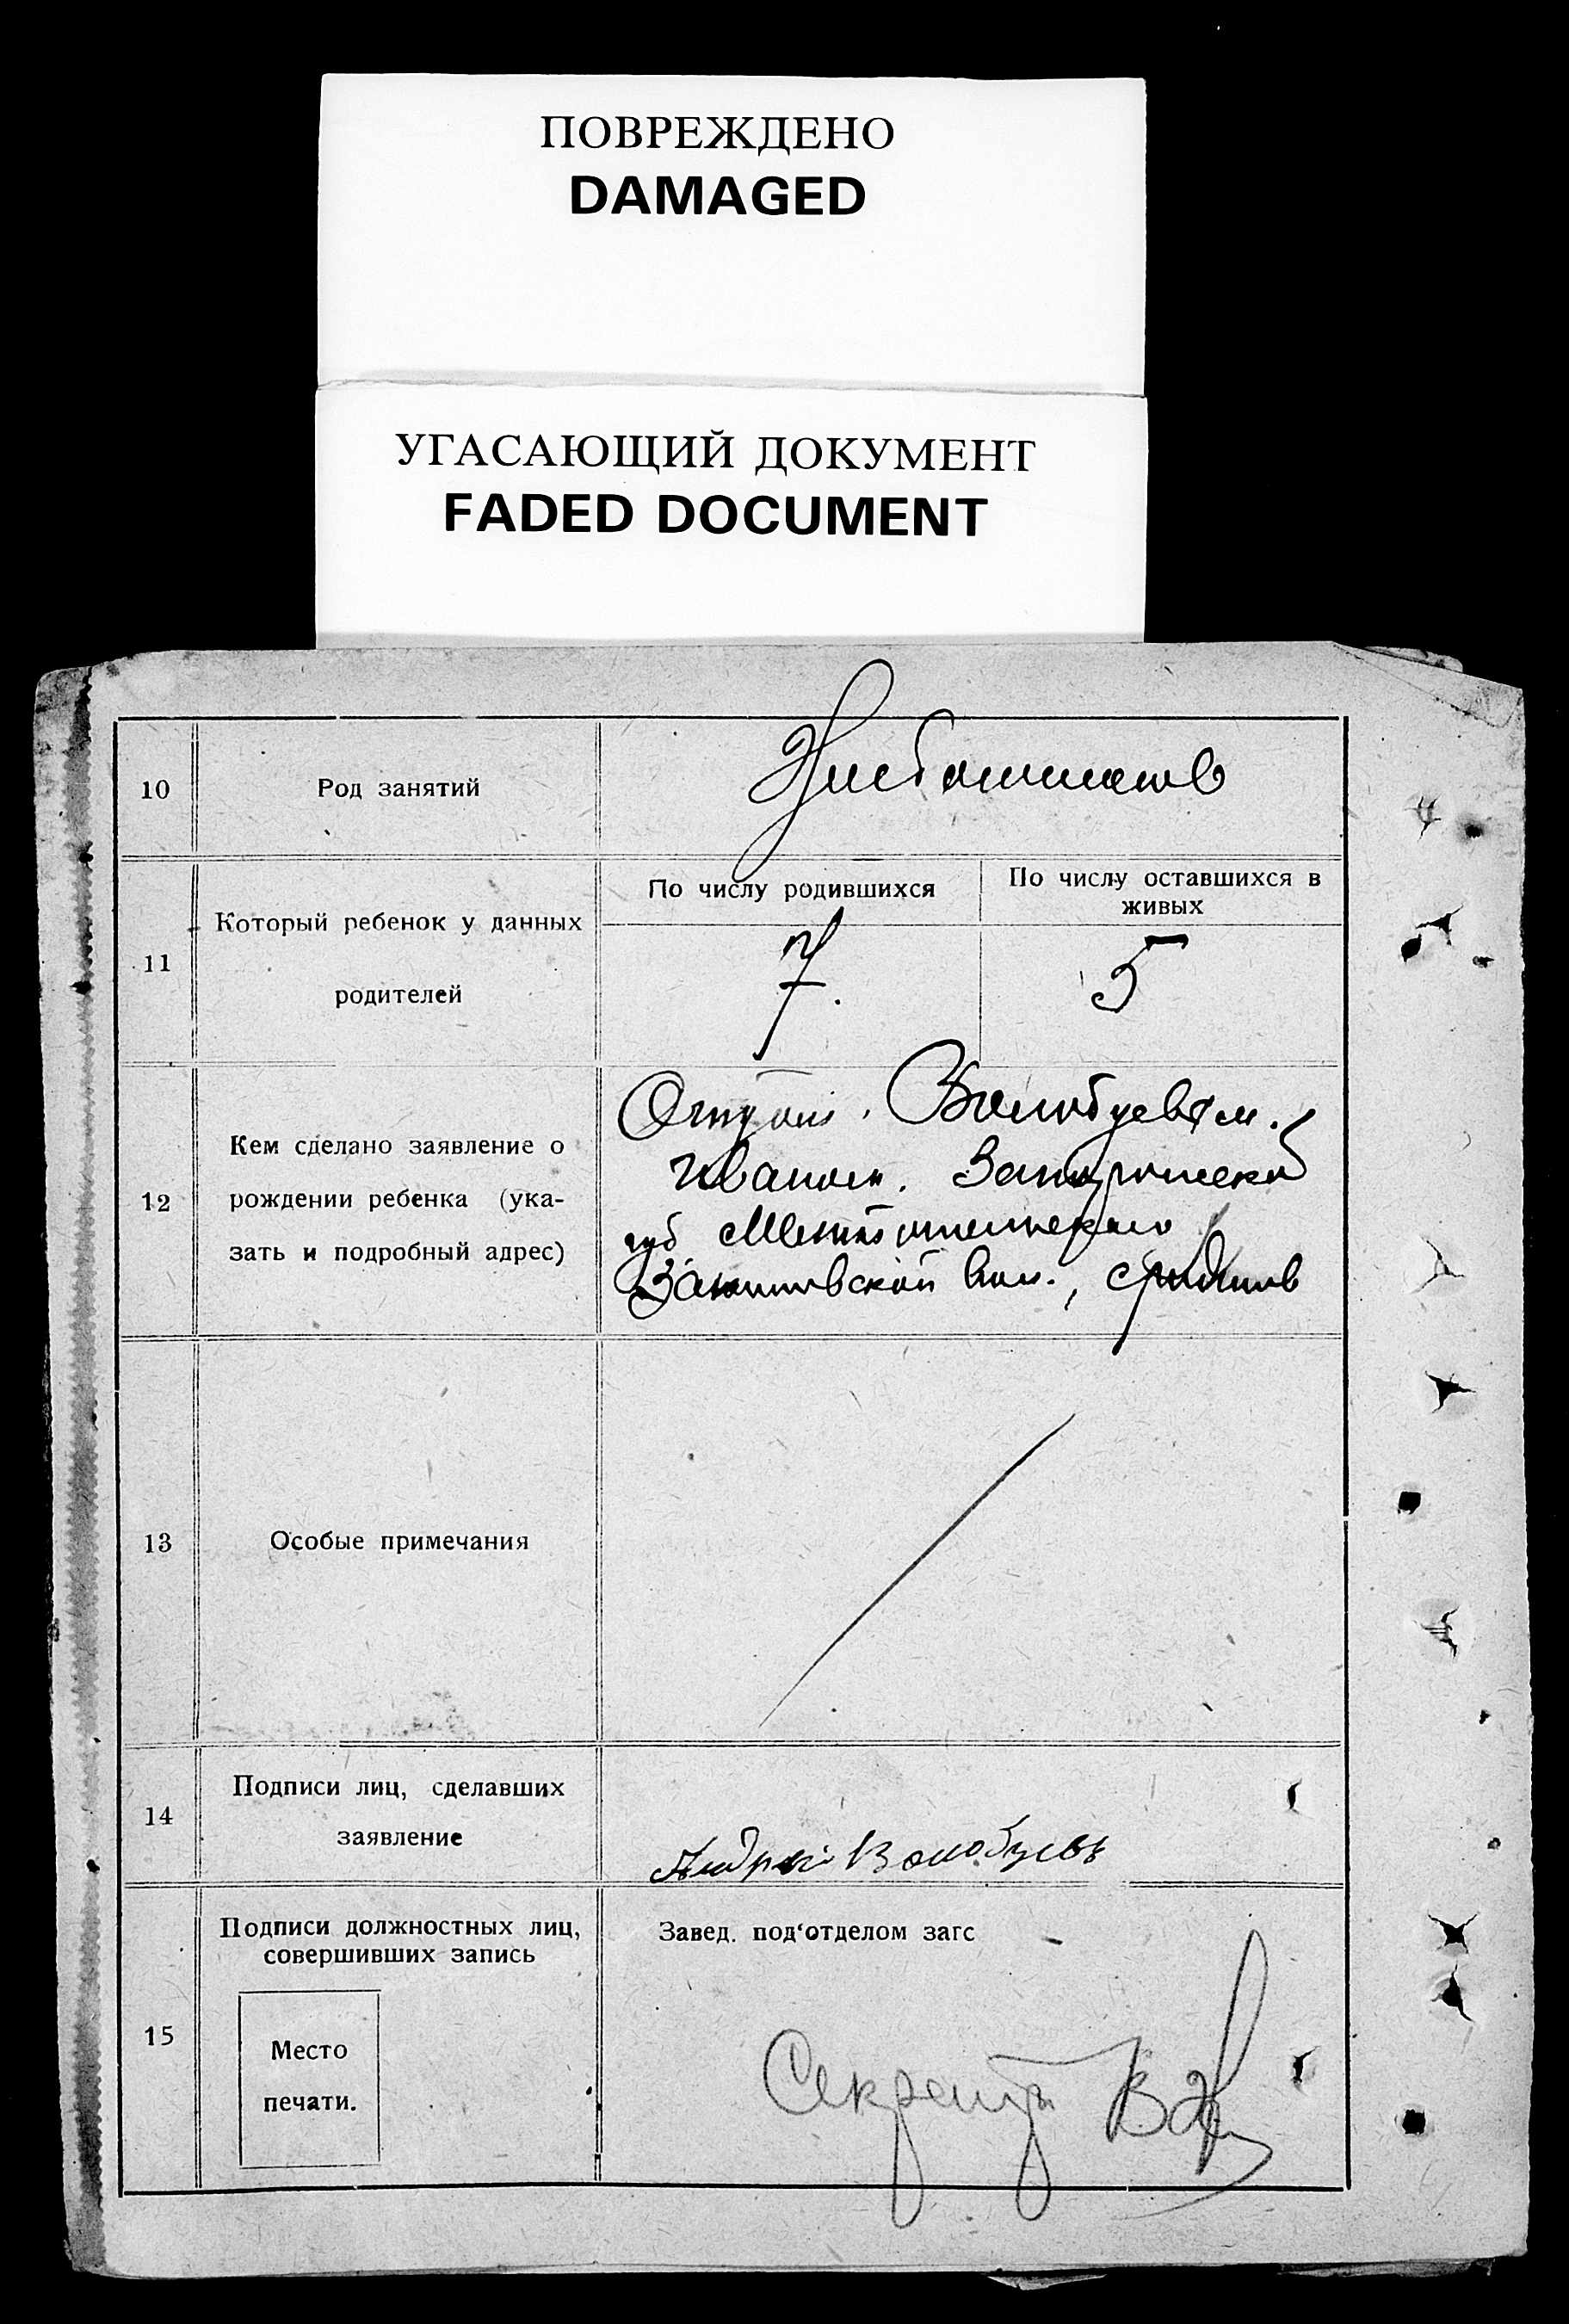 ПОВРЕЖДЕНО
DAMAGED
УГАСАЮЩИЙ ДОКУМЕНТ
FADED DOCUMENT
10
Род занятий
11
Который ребенок у данных
родителей
По числу родившихся
7.
По числу оставшихся в
живых
5
12
Кем сделано заявление о
рождении ребенка (ука-
зать и подробный адрес)
Отцом. Волобуевым.
Иваном.
губ
13
Особые примечания
14
Подписи лиц, сделавших
заявление
Андрей Волобуевъ
15
Подписи должностных лиц,
совершивших запись
Место
печати.
Завед. под'отделом загс
Секрет